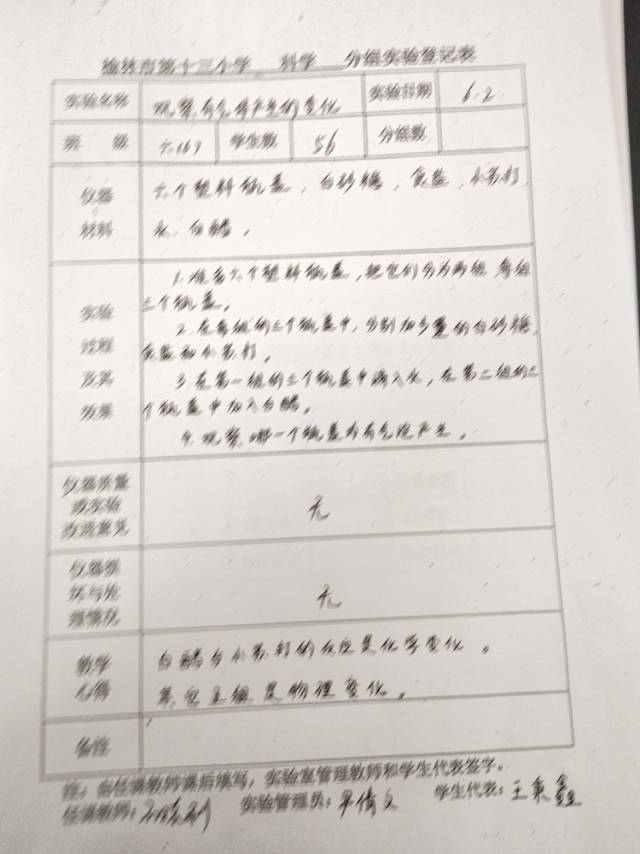 榆林市第十三小学 科学 分组实验登记表
实验名称 观察有气体产生的变化 实验日期 6.2
班 级 学生数 56 分组数
仪器 六个塑料瓶盖，白砂糖，食盐，小苏打
材料 水，白醋。
1.准备六个塑料瓶盖，把它们分为两组，每组
实验 三个瓶盖。
过程 2.在每组的三个瓶盖中，分别加少量的白砂糖，
食盐和小苏打。
及其 3.在第一组的三个瓶盖中滴入水，在第二组的三
效果 个瓶盖中加入白醋。
4.观察哪一个瓶盖内有气泡产生。
仪器质量
或实验 无
改进意见
仪器损
坏与处 无
理情况
教学 白醋与小苏打的反应是化学变化。
心得 其它五组是物理变化。
备注
注：由任课教师课后填写，实验室管理教师和学生代表签字。
任课教师： 实验管理员： 学生代表：王秉鑫